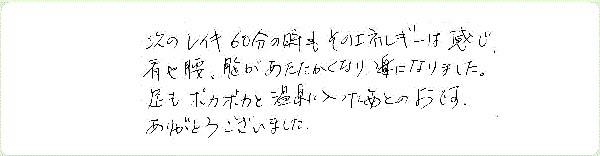 次のレイキ60分の時もそのエネルギーは感じ、
背や腰、脇があたたかくなり楽になりました。
足もポカポカと温泉に入ったあとのようです。
ありがとうございました。